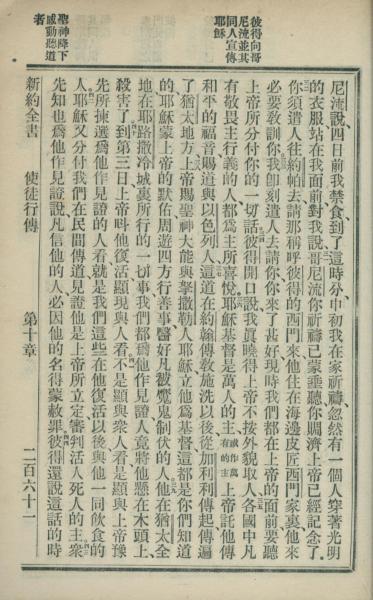 彼得向哥
尼流並其
同人宣傳
耶穌
聖神降下
感動聽道
者
尼流說、四日前我禁食到了這時分、申初我在家祈禱、忽然有一個人、穿著光明
的衣服站在我面前、對我說、哥尼流、你祈禱已蒙垂聽、你賙濟上帝已經記念了、
你須遣人往約帕去、請那稱呼彼得的西門來、他住在海邊皮匠西門家裏、他來
必要教訓你、我卽刻遣人去請你、你來了甚好、現時我們都在上帝的面前、要聽
上帝所分付你的一切話、彼得開口說、我眞曉得上帝不按外貌取人、各國中凡
有敬畏主行義的人、都爲主所喜悅、耶穌基督是萬人的主、或作萬有的主上帝託他傳
和平的福音、賜道與以色列人、這道在約翰傳敎施洗以後、從加利利傳起、傳遍
了猶太地方、上帝賜聖神大能與拏撒勒人耶穌、立他爲基督、這都是你們知道
的、耶穌蒙上帝的默佑、周遊四方行善事、醫好凡被魔鬼制伏的人、他在猶太全
地在耶路撒冷城裏所行的一切事、我們都爲他作見證、人竟將他懸在木頭上
殺害了、到第三日上帝叫他復活顯現與人看、不是顯與衆人看、是顯與上帝豫
先所揀選爲他作見證的人看、就是我們這些在他復活以後與他一同飮食的
人、耶穌又分付我們在民間傳道、見證他是上帝所立定審判活人死人的主、衆
先知也爲他作見證說、凡信他的人、必因他的名得蒙赦罪、彼得還說這話的時
新約全書　使徒行傳　第十章　二百六十一